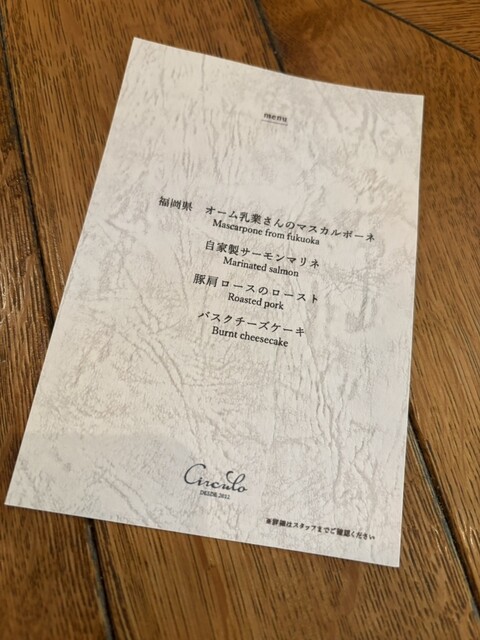 menu
福岡県　オーム乳業さんのマスカルポーネ
Mascarpone from fukuoka
自家製サーモンマリネ
Marinated salmon
豚肩ロースのロースト
Roasted pork
バスクチーズケーキ
Burnt cheesecake
Circulo
DESDE 2012
※詳細はスタッフまでご確認ください